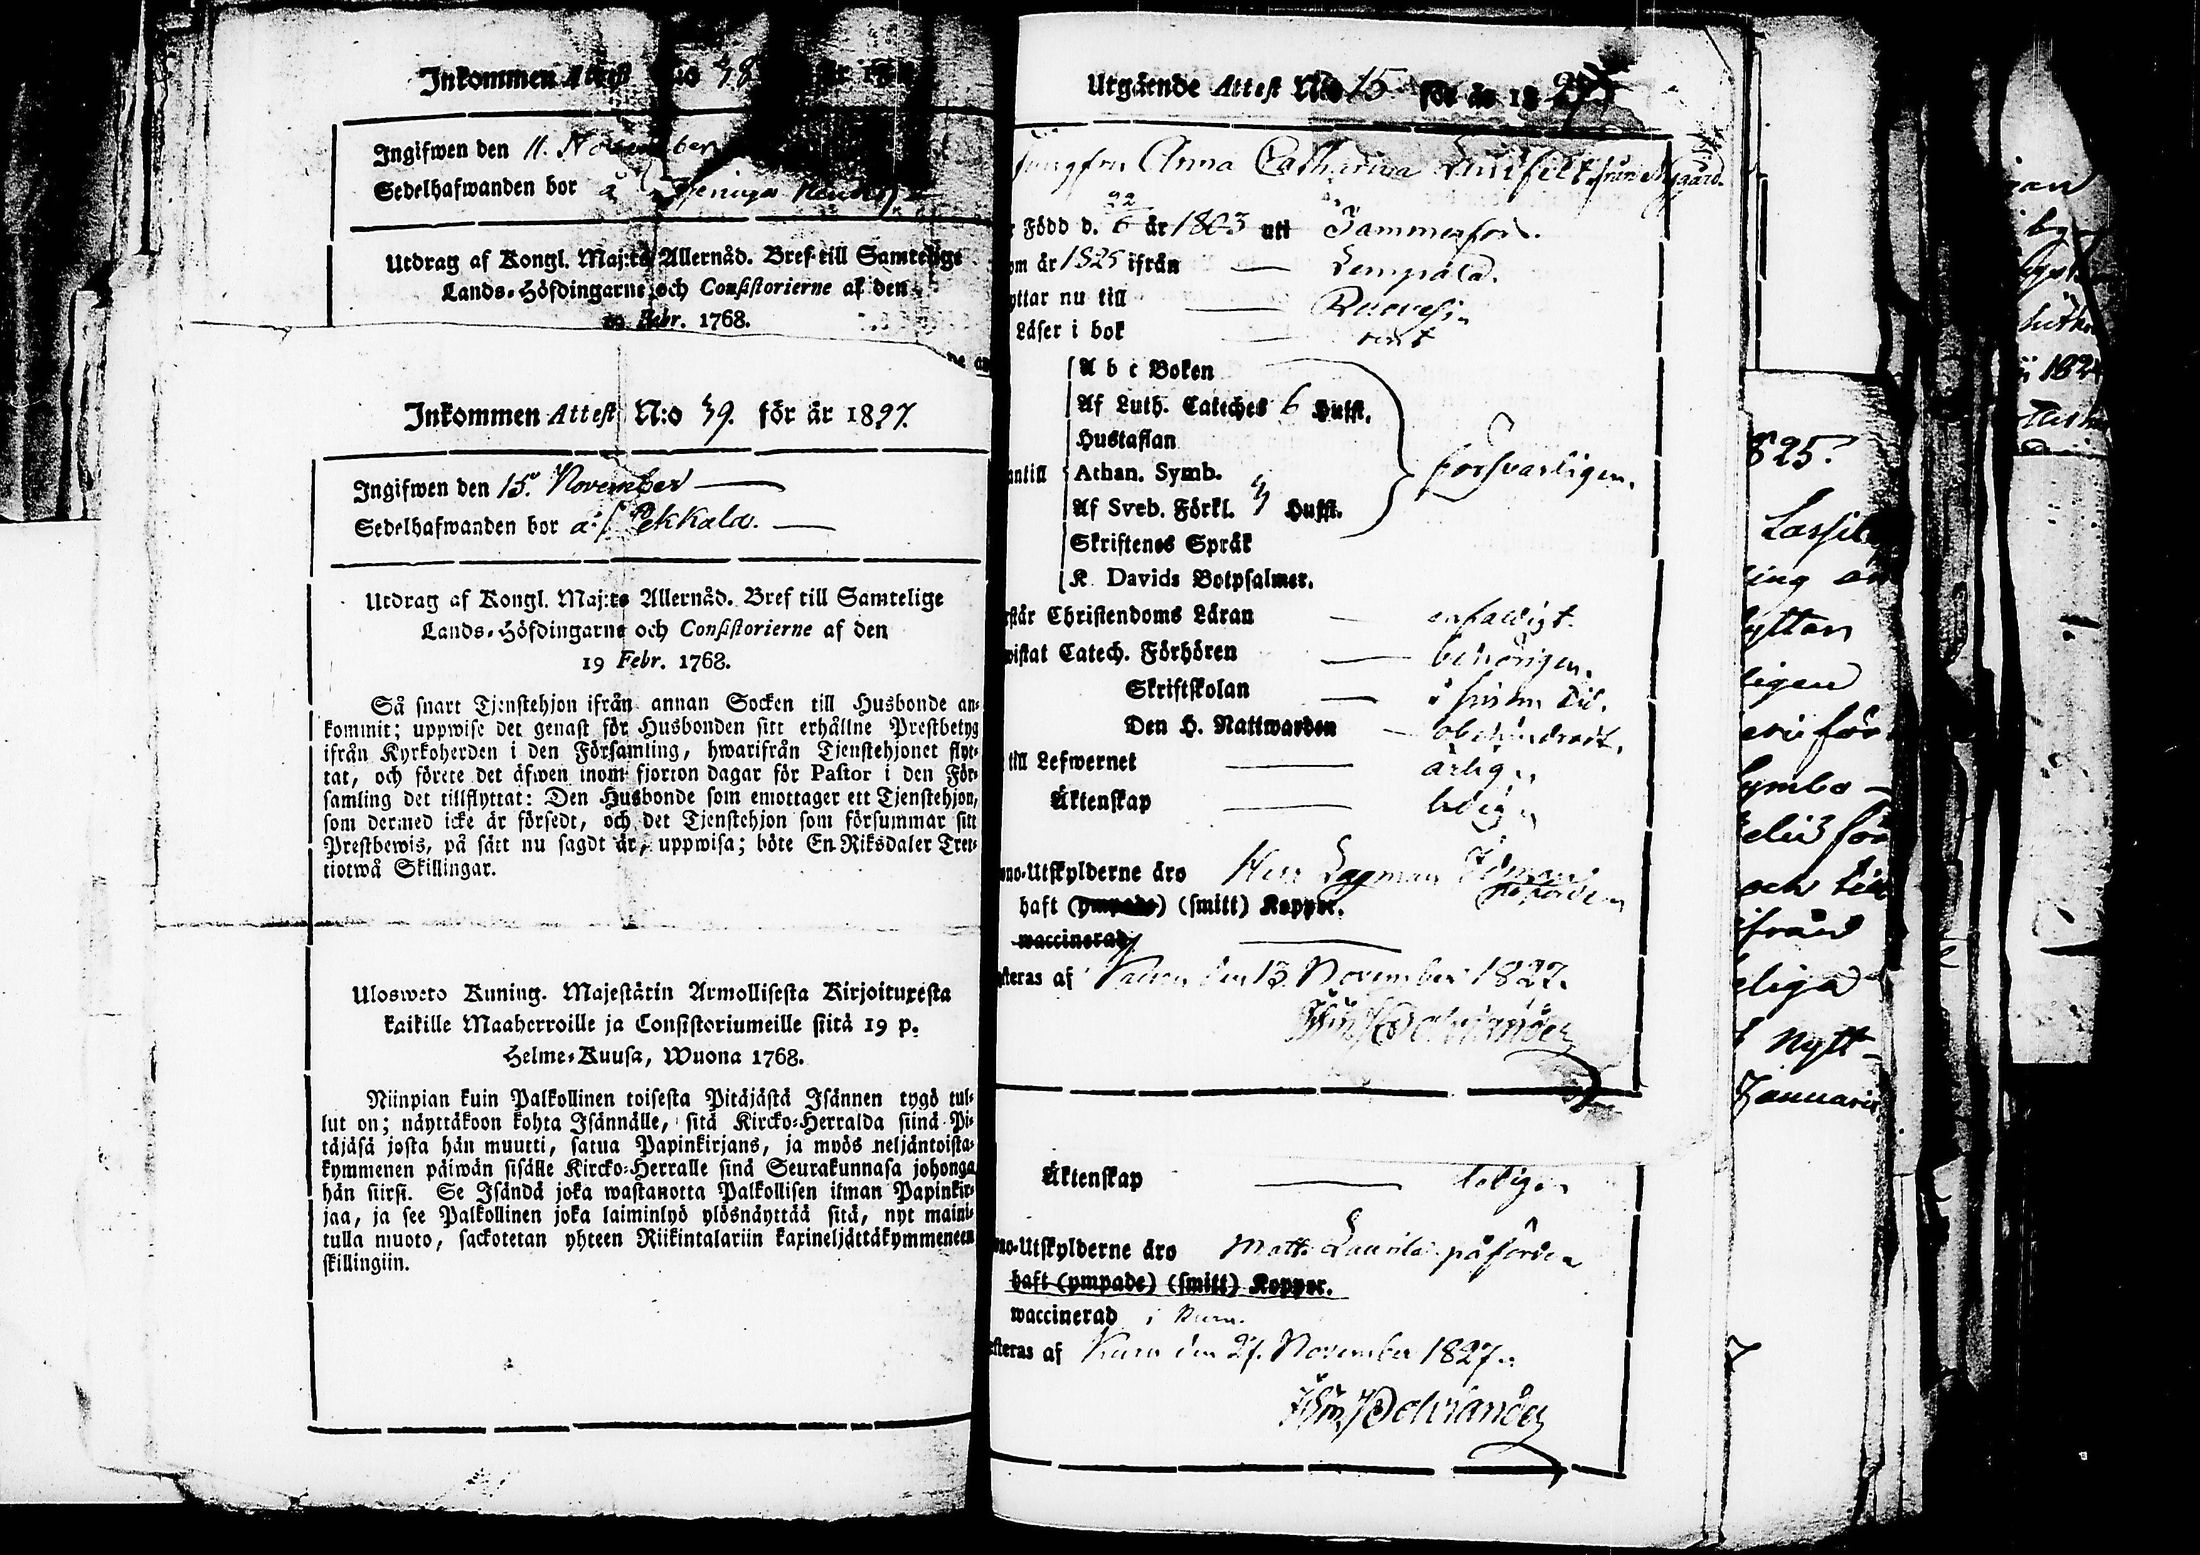 Inkommen Attest N:o 38
Ingifwen den 11. November
Sedelhafwanden bor å
Utdrag af Kongl. Maj:ts Allernåd. Bref till Samtelige
Lands-Höfdingarne och Consistorierne af den
19 Febr. 1768.
Inkommen Attest N:o 39. för år 1827.
Ingifwen den 15. November
Sedelhafwanden bor å Pekkala.
Utdrag af Kongl. Maj:ts Allernåd. Bref till Samtelige
Lands-Höfdingarne och Consistorierne af den
19 Febr. 1768.
Så snart Tjenstehjon ifrån annan Socken till Husbonde an-
kommit; uppwise det genast för Husbonden sitt erhållne Prestbetyg
ifrån Kyrkoherden i den Församling, hwarifrån Tjenstehjonet flyt-
tat, och förete det äfwen inom fjorton dagar för Pastor i den För-
samling det tillflyttat: Den Husbonde som emottager ett Tjenstehjon,
som dermed icke är försedt, och det Tjenstehjon som försummar sitt
Prestbewis, på sätt nu sagdt är, uppwisa; böte En Riksdaler Tret-
tiotwå Skillingar.
Ulosweto Kuning. Majestätin Armollisesta Kirjoituxesta
kaikille Maaherroille ja Consistoriumeille siitä 19 p.
Helme-Kuusa, Wuona 1768.
Niinpian kuin Palkollinen toisesta Pitäjästä Isännen tygö tul-
lut on; näyttäkoon kohta Isännälle, sitä Kircko-Herralda siinä Pi-
täjäsä josta hän muutti, saatua Papinkirjans, ja myös neljäntoista-
kymmenen päiwän sisälle Kircko-Herralle sinä Seurakunnasa johonga
hän siirsi. Se Isändä joka wastanotta Palkollisen ilman Papinkir-
jaa, ja see Palkollinen joka laiminlyö ylösnäyttää sitä, nyt maini-
tulla muoto, sackotetan yhteen Riikintalariin kaxineljättäkymmeneen
skillingiin.
Utgående Attest N:o 15 för år 1827
Jungfru Anna Catharina från Nygård.
Född d. 22/6 år 1803 uti Tammerfors.
om år 1825 ifrån Lempälä.
yttar nu till Ruovesi
Läser i bok rent
A b c Boken
Af Luth. Cateches 6 Hufst.
Hustaflan
antill Athan. Symb. försvarligen.
Af Sveb. Förkl. Hufst.
Skriftenes Språk
K. Davids Botpsalmer.
rstår Christendoms Läran enfaldigt.
wistat Catech. Förhören behörigen.
Skriftskolan i sinom tid.
Den H. Nattwarden obehindradt.
till Lefwernet ärlig
Äktenskap ledig
ono-Utskylderne äro Herr Lagman Idman påförde
haft (ympade) (smitt) Koppor.
waccinerad
steras af Kuru den 13. November 1827.
Äktenskap ledig
ono-Utskylderne äro Matts Laurila påförde
haft (ympade) (smitt) Koppor.
waccinerad i Kuru.
steras af Kuru den 27. November 1827.
825.
ing
yttar
ligen
ymbo
och till
ifrån
eliga
nytt-
Januarii